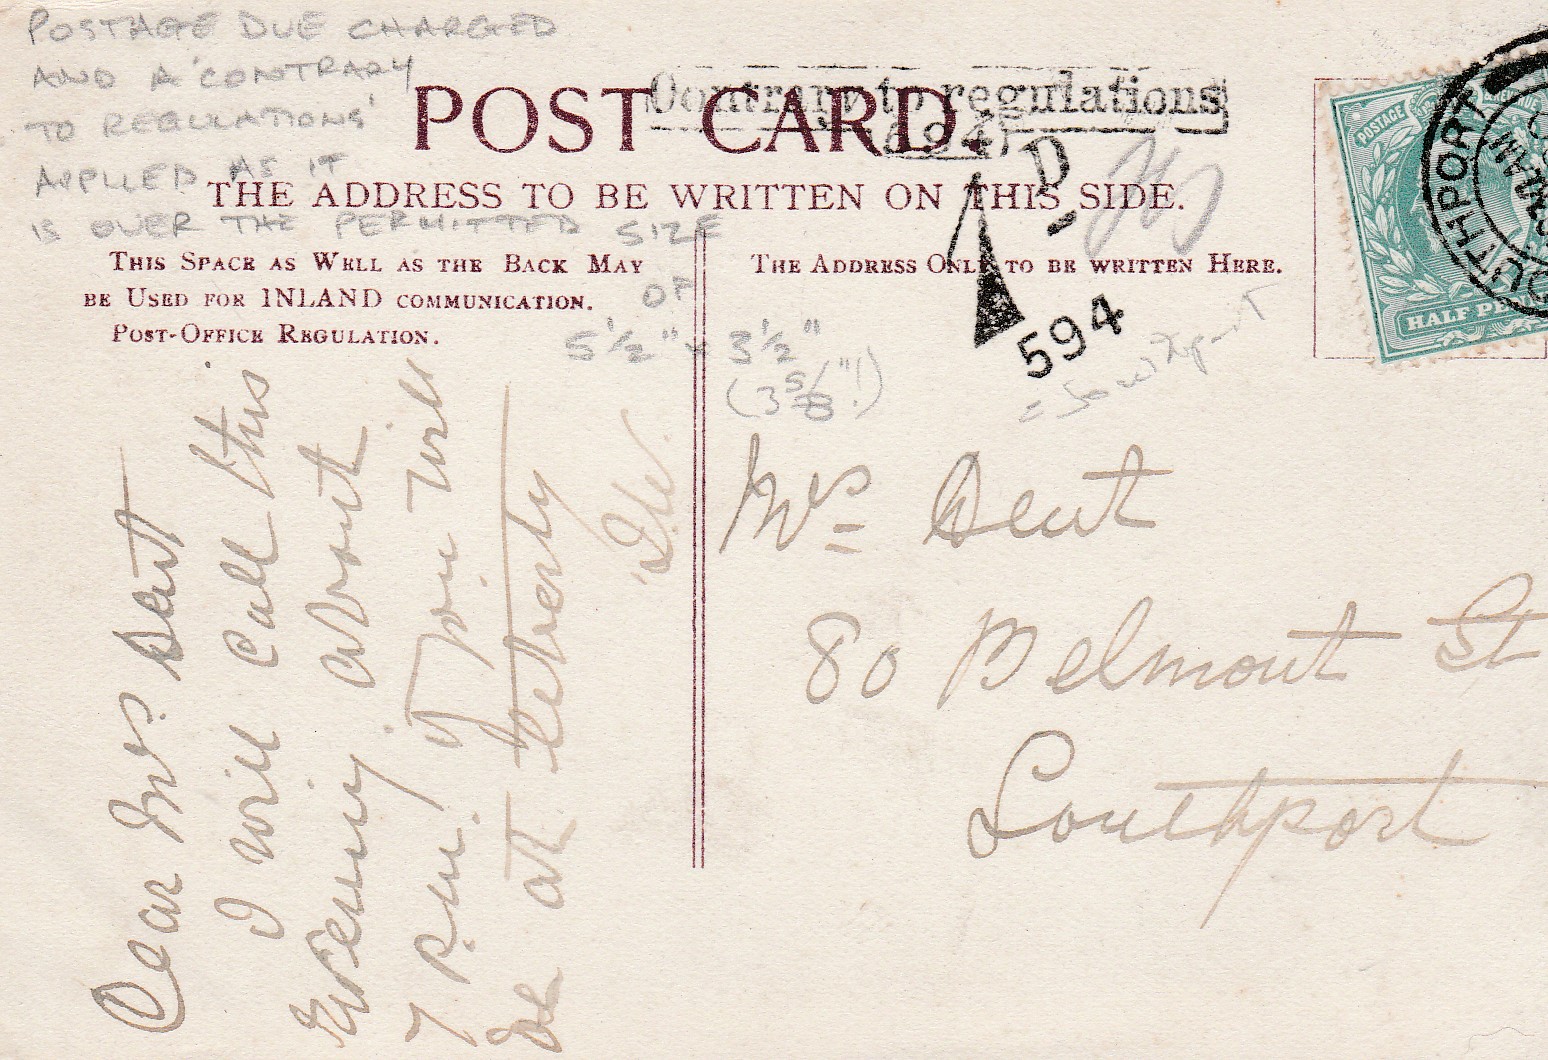 POSTAGE DUE CHARGED
AND A 'CONTRARY
TO REGULATIONS'
APPLIED AS IT
IS OVER THE PERMITTED SIZE
OF
5½" x 3½"
(3⅝"!)
POST CARD.
Contrary to regulations
594
THE ADDRESS TO BE WRITTEN ON THIS SIDE.
THIS SPACE AS WELL AS THE BACK MAY
BE USED FOR INLAND COMMUNICATION.
POST-OFFICE REGULATION.
THE ADDRESS ONLY TO BE WRITTEN HERE.
D
594
= Southport
POSTAGE REVENUE
HALF PE
OUTHPORT
AM
Dear Mrs. Dent
I will call this
Evening about
7 P.M. You will
be at Liberty
Mrs Dent
80 Belmont St
Southport